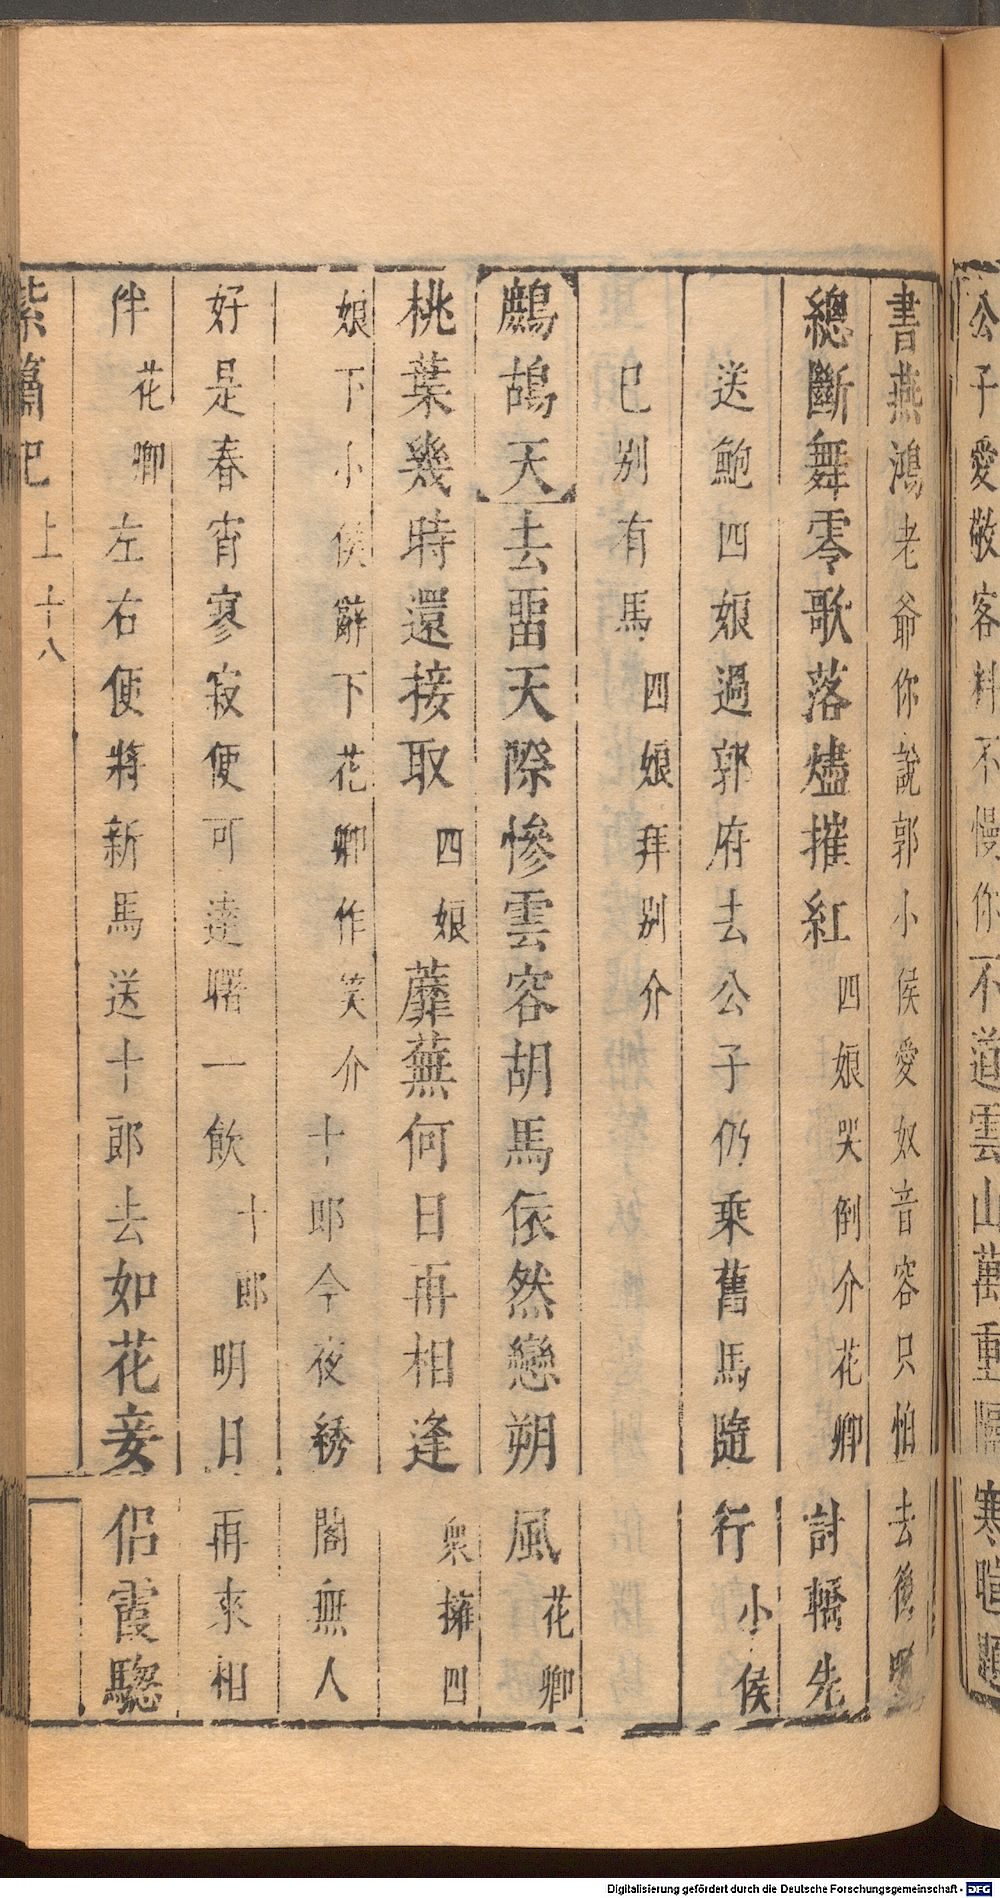 公子愛敬客料不慢你不道雲山萬重隔寒暄題
書燕鴻老爺你說郭小侯愛奴音容只怕去後
總斷舞零歌落燼摧紅四娘哭倒介花卿計轎先
送鮑四娘過郭府去公子仍乘舊馬隨行小侯
已别有馬四娘拜别介
鷓鴣天去畱天際慘雲容胡馬依然戀朔風花卿
桃葉幾時還接取四娘蘼蕪何日再相逢衆擁四
娘下小侯辭下花卿作笑介十郎今夜綉閣無人
好是春宵寥寂便可達曙一飲十郎明日再來相
伴花卿左右便將新馬送十郎去如花妾侶霞驄
紫簫記上十八
Digitalisierung gefördert durch die Deutsche Forschungsgemeinschaft - DFG